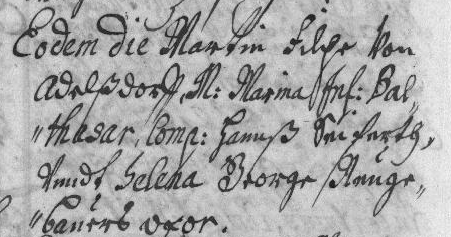 Eodem die Martin Filpe von
Adelßdorff, M: Marina Inf: Bal„
„thasar, Comp: Hannß Seiferth,
Vnndt Helena George Neuge„
„bauers vxor.